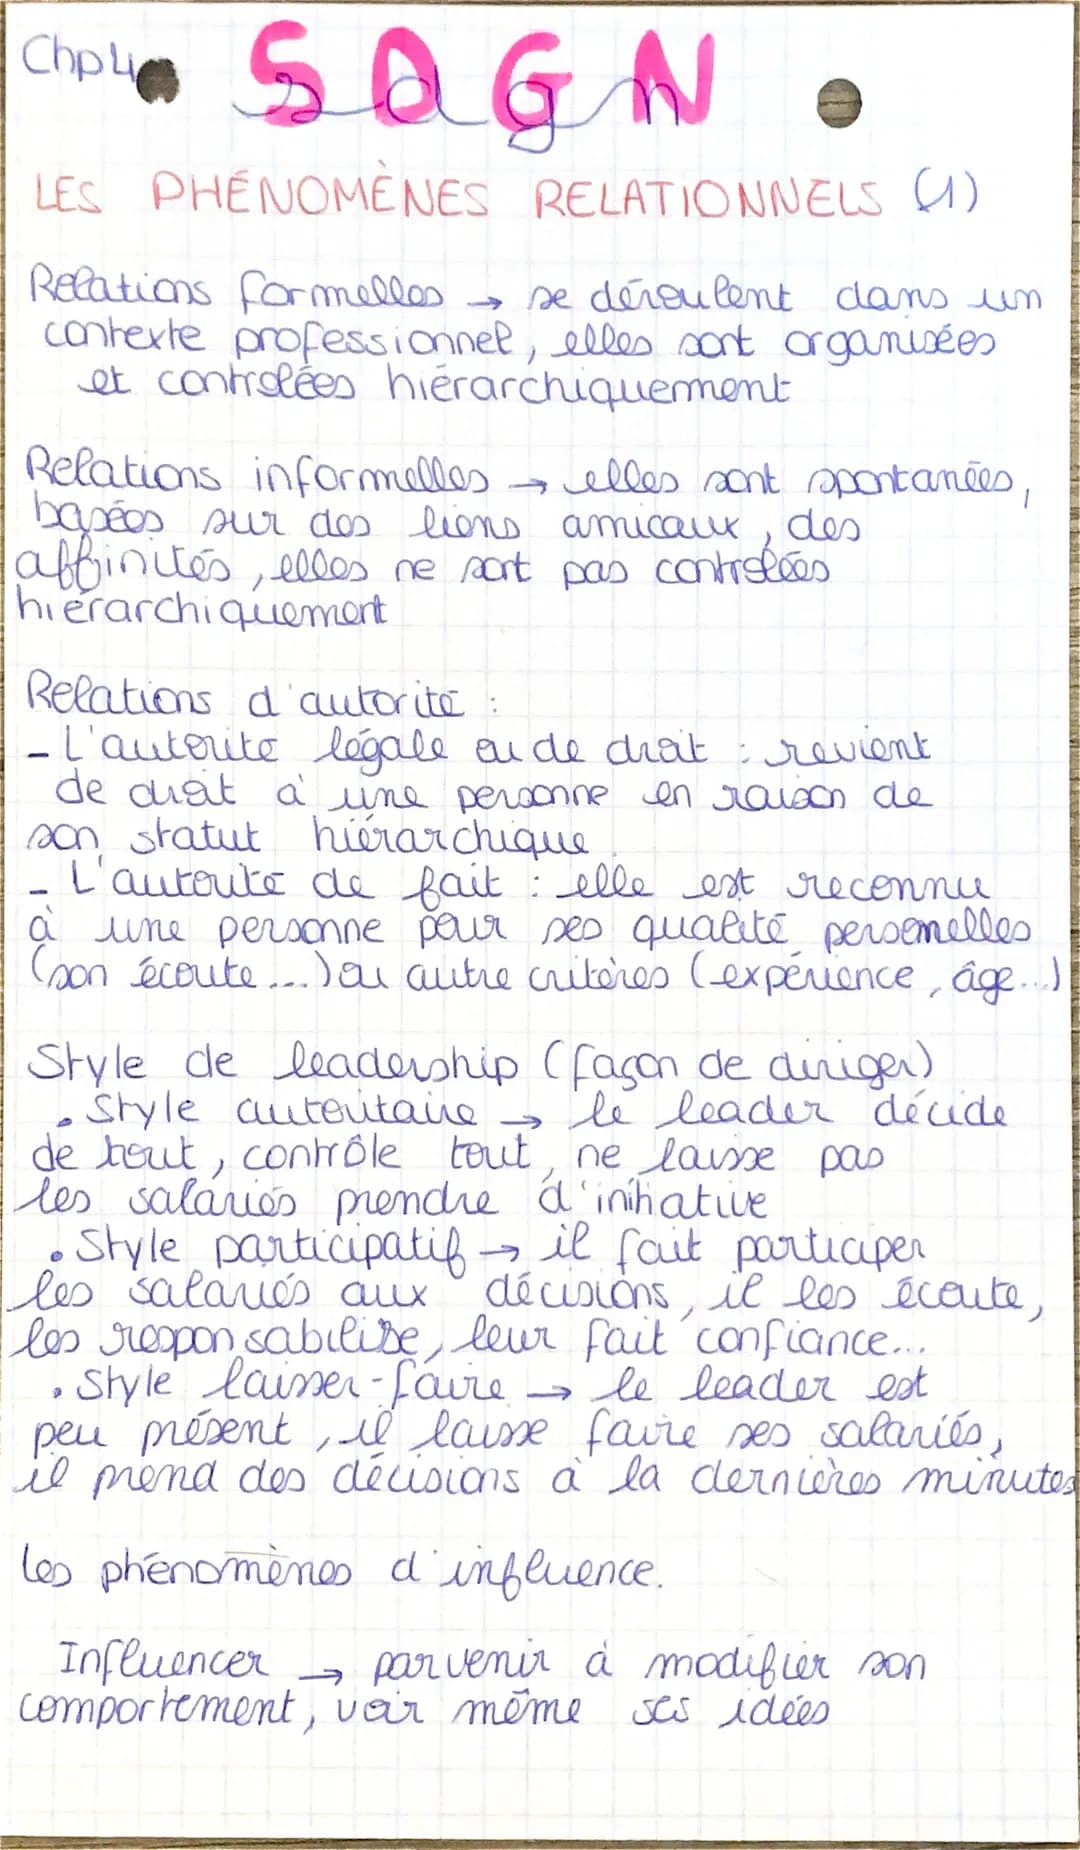 Chp 4
SDGN
sdgn
LES PHÉNOMÈNES RELATIONNELS (1)
Relations formelles → se déroulent dans un
contexte professionnel, elles sont organisées
et contrôlées hiérarchiquement
Relations informelles → elles sont spontanées,
basées sur des liens amicaux, des
affinités, elles ne sont pas contrôlées
hiérarchiquement
Relations d'autorité :
- L'autorité légale ou de droit : revient
de droit à une personne en raison de
son statut hiérarchique.
- L'autorité de fait : elle est reconnu
à une personne pour ses qualité personnelles
(son écoute...) ou autre critères (expérience, âge...)
Style de leadership (façon de diriger)
• Style autoritaire → le leader décide
de tout, contrôle tout, ne laisse pas
les salariés prendre d'initiative
• Style participatif → il fait participer
les salariés aux décisions, il les écoute,
les responsabilise, leur fait confiance...
• Style laisser-faire → le leader est
peu présent, il laisse faire ses salariés,
il prend des décisions à la dernières minutes
Les phénomènes d'influence.
Influencer → parvenir à modifier son
comportement, voir même ses idées